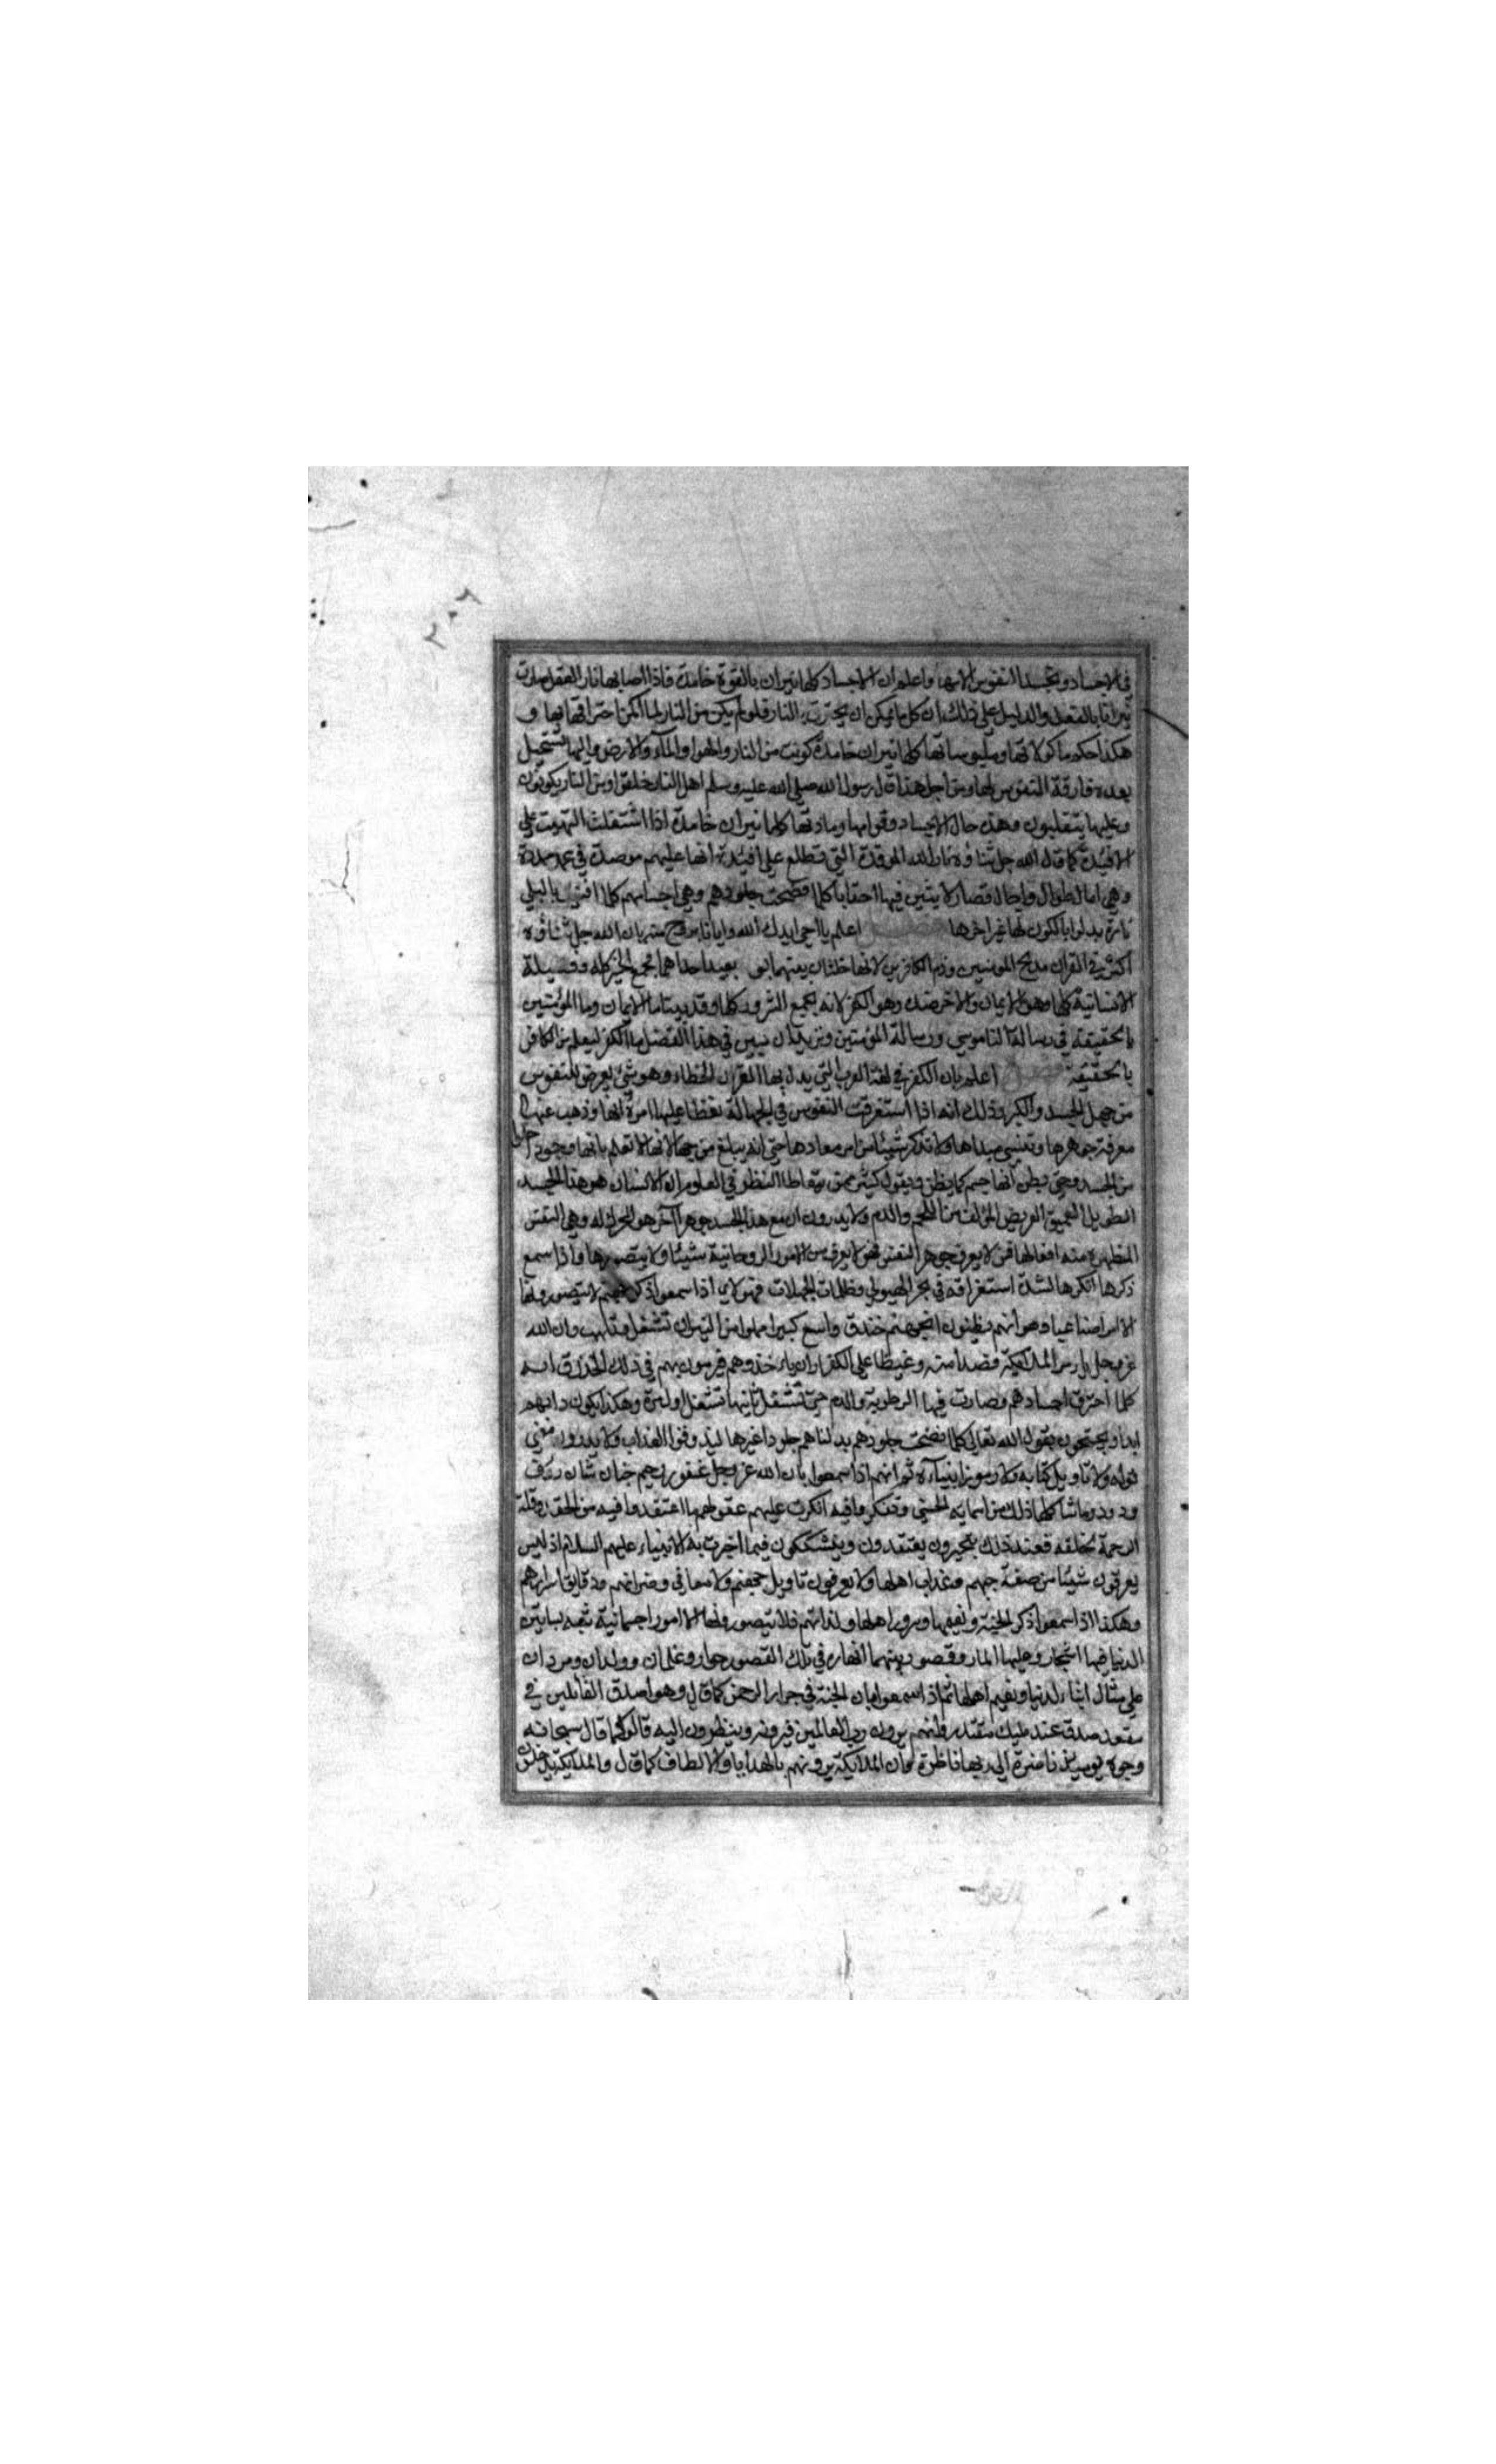 ٢٠٢
في الاجساد وتجسد النفوس لابها واعلم ان الاجساد كلها نيران بالقوة خامدة فاذا اصابها نار العقل صارت
نيرانا بالفعل والدليل على ذلك ان كل ما يمكن ان يحترق بالنار فلو لم يكن من النار لما امكن احتراقها بها و
هكذا حكم ماكولاتها وملبوساتها كلها نيران خامدة كونت من النار والهوا والمآء والارض واليها تستحيل
بعد مفارقة النفوس لها ومن اجل هذا قال رسول الله صلى الله عليه وسلم اهل النار خلقوا ومن النار يكونون
وعليها يتقلبون وهذه حال الاجساد وقوامها ومادتها كلها نيران خامدة اذا اشتعلت التهبت على
الافئدة كما قال الله جل ثناؤه نار الله الموقدة التي تطلع على افئدة انها عليهم موصدة في عمد ممددة
وهي امال طوال واجال قصار لابثين فيها احقابا كلما نضجت جلودهم وهي اجسامهم كلما افنيت بالبلى
تارة بدلوا بالكون لها غير اخرها فصل اعلم يا اخي ايدك الله وايانا بروح منه بان الله جل ثناؤه
اكثر في القران مديح المومنين وذم الكافرين لانها خلتان بعيد احداهما تجمع الخير كله وفضيلة
الانسانية كلها وهو الايمان والاخر ضده وهو الكفر لانه يجمع الشرور كلها وقد بينا ما الايمان وما المؤمنين
بالحقيقة في رسالة الناموسي ورسالة المؤمنين ونريد ان نبين في هذا الفصل ما الكفر ليعلم من الكافر
بالحقيقة فصل اعلم بان الكفر في لغة العرب التي يدل بها القران الخطاء وهو شئ يعرض للنفوس
من جهل الجسد والكبر وذلك انه اذا استغرقت النفوس في الجهالة تغطا عليها امرة انها وذهب عنها
معرفة جوهرها وتنسى مبداها ولا تذكر شيئا من امر معادها حتى انه يبلغ من جهالاتها لا تعلم بانها وجود
من الجسد وحتى يظن انها جسم كما يظن ويقول كثير ممن يتعاطا النظر في العلوم ان الانسان هو هذا الجسد
الطويل العميق العريض المؤلف من اللحم والدم ولا يدرون ان مع هذا الجسد جوهرا آخر هو المحرك له وهي النفس
المظهرة منه افعالها فمن لا يعرف جوهر النفس فهو لا يعرف من الامور الروحانية شيئا ولا يتصورها واذا سمع
ذكرها انكرها لشدة استغراقه في بحر الهيولى وظلمات الجهالات فهولاي اذا سمعوا ذكر جهنم لا يتصورونها
الا وهو انهم يظنون ان جهنم خندق واسع كبير مملوا من النيران تشتعل وتلهب وان الله
عز وجل يامر الملائكة قصدا منه وغيظا على الكفار ان ياخذوهم فيرمون بهم في ذلك الخندق انه
كلما احترق اجسادهم وصارت فيها الرطوبة والدم حتى تشتعل ثانيها تشتعل اول مرة وهكذا يكون دابهم
ابدا ويحتجون بقول الله تعالى كلما نضجت جلودهم بدلناهم جلودا غيرها ليذوقوا العذاب ولا يدرون معنى
قوله ولا تاويل كتابه ولا رموز انبيآءه ثم انهم اذا سمعوا بان الله عز وجل غفور رحيم حنان منان رؤف
ودود وما شاكلها ذلك من اسمايه الحسنى وتفكر وافيه انكرت عليهم عقولهم ما اعتقدوا فيه من الحقد وقلة
الرحمة لخلقه فعند ذلك يتحيرون يعتقدون ويتشككون فيما اخبرت به الانبياء عليهم السلام اذ ليس
يعرفون شيئا من صفة جهنم وعذاب اهلها ولا يعرفون تاويل ولا معاني ودقايق اسرارهم
وهكذا اذا سمعوا ذكر الجنة ونعيمها وسرور اهلها ولذاتهم فلا يتصورونها الا امور اجسمانية شبه بساتين
الدنيا فيها اشجار وعليها الثمار وقصور بينهما انهار في تلك القصور حوار وغلمان وولدان ومردان
على مثال ابناء الدنيا ونعيم اهلها ثم اذا سمعوا بان الجنة في جوار الرحمن كما قال وهو اصدق القائلين في
مقعد صدق عند مليك مقتدر وانهم يرون رب العالمين فيرونه وينظرون اليه قالوا كما قال سبحانه
وجوه يوميذ ناضرة الى ربها ناظرة وان الملائكة يرونهم بالهدايا والالطاف كما قال والملائكة يدخلون